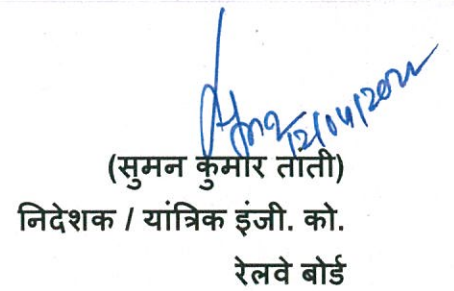 12/04/2022
(सुमन कुमार ताती)
निदेशक / यांत्रिक इंजी. को.
रेलवे बोर्ड